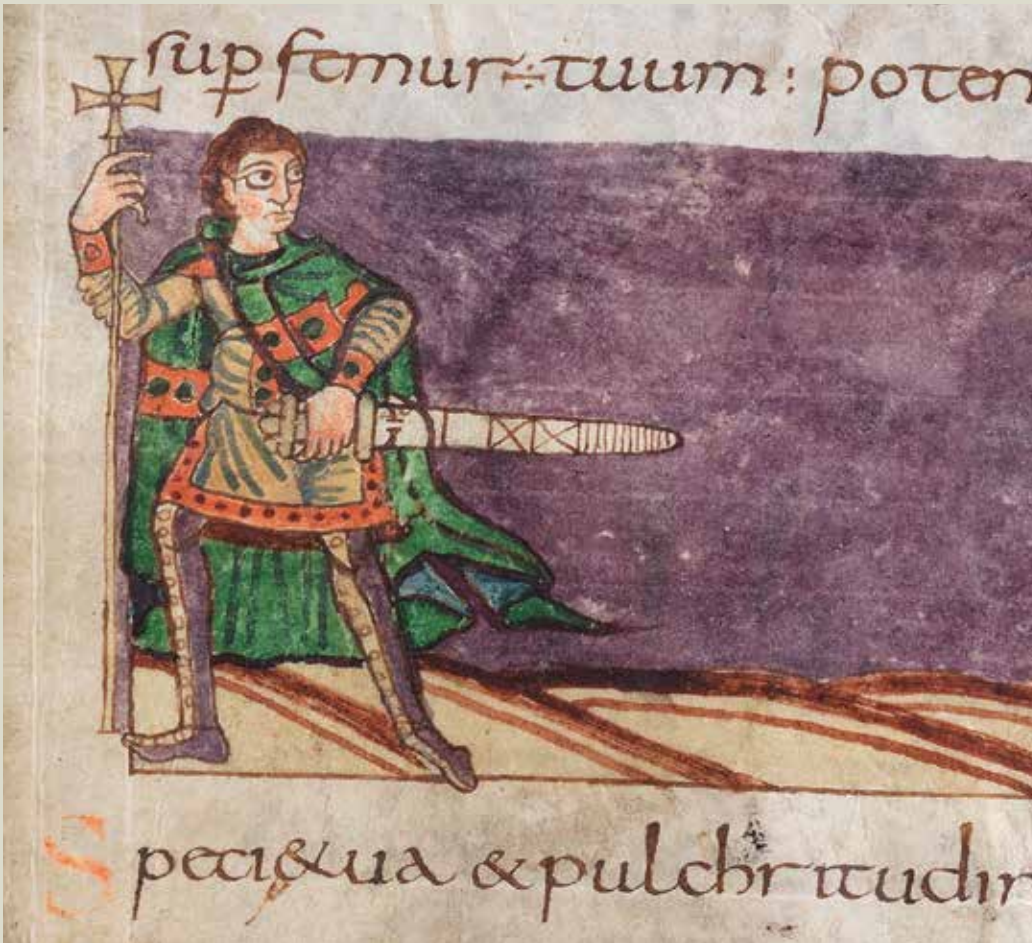 suꝑ femur÷tuum: poten
Speci&ua & pulchritudin